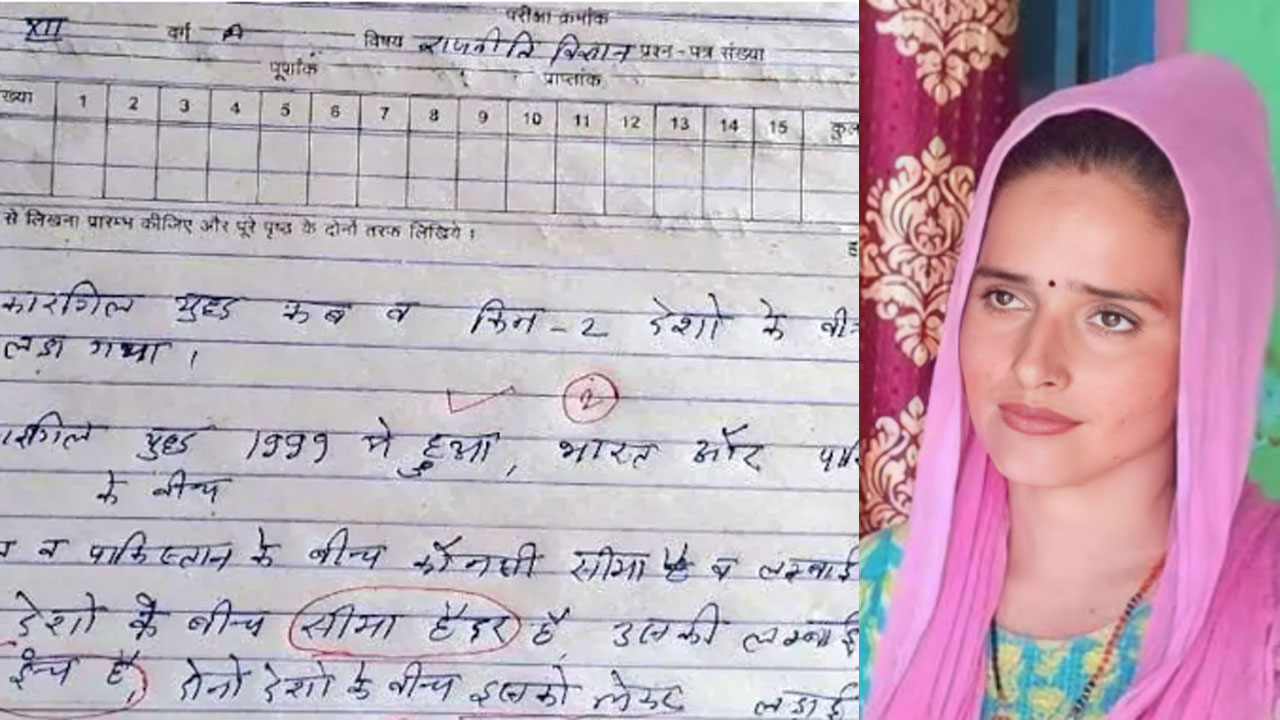 परीक्षा क्रमांक
XII वर्ग A विषय राजनीति विज्ञान प्रश्न-पत्र संख्या
पूर्णांक प्राप्तांक
ख्या 1 2 3 4 5 6 7 8 9 10 11 12 13 14 15 कुल
से लिखना प्रारम्भ कीजिए और पूरे पृष्ठ के दोनों तरफ लिखिये।
कारगिल युद्ध कब व किन-2 देशो के बीच
लडा गया।
2
रगिल युद्ध 1999 मे हुआ, भारत और पाि
के बीच
त व पाकिस्तान के बीच कौनसी सीमा है व लम्बाई
देशो के बीच सीमा हैदर है, उसकी लम्बाई
इन्च है, दोनो देशो के बीच इसको लेकर लडाई